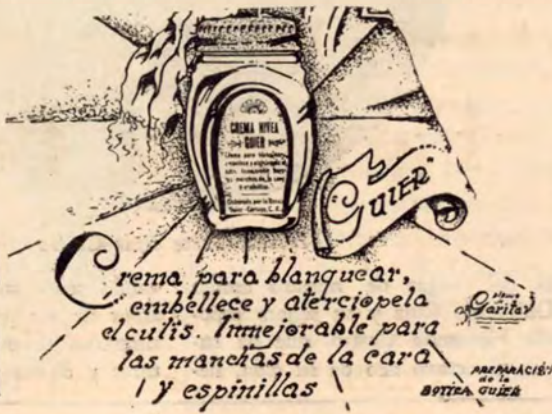 CREMA NIVEA
GUIER
"GUIER"
Crema para blanquear,
embellece y aterciopela
el cutis. Inmejorable para
las manchas de la cara
y espinillas
Garita
PREPARACIÓN
de la
BOTICA GUIER